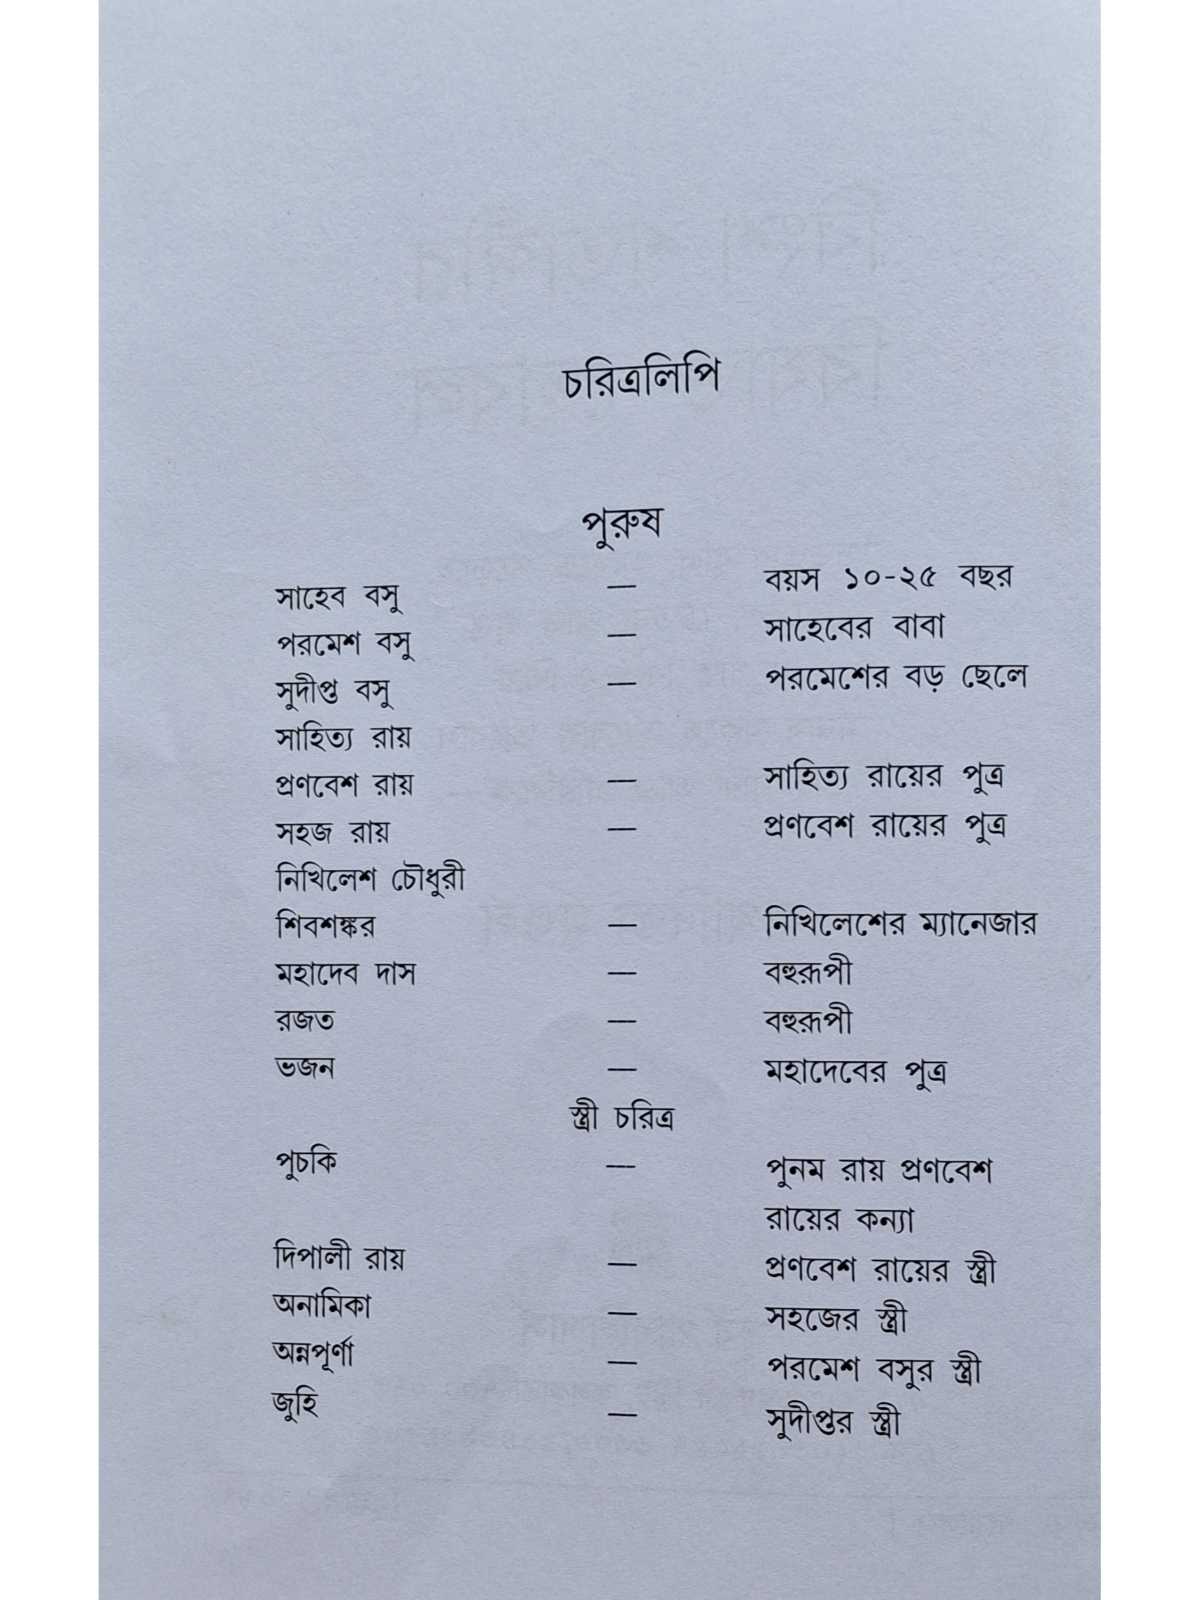 চরিত্রলিপি
পুরুষ
সাহেব বসু — বয়স ১০-২৫ বছর
পরমেশ বসু — সাহেবের বাবা
সুদীপ্ত বসু — পরমেশের বড় ছেলে
সাহিত্য রায়
প্রণবেশ রায় — সাহিত্য রায়ের পুত্র
সহজ রায় — প্রণবেশ রায়ের পুত্র
নিখিলেশ চৌধুরী
শিবশঙ্কর — নিখিলেশের ম্যানেজার
মহাদেব দাস — বহুরূপী
রজত — বহুরূপী
ভজন — মহাদেবের পুত্র
স্ত্রী চরিত্র
পুচকি — পুনম রায় প্রণবেশ
রায়ের কন্যা
দিপালী রায় — প্রণবেশ রায়ের স্ত্রী
অনামিকা — সহজের স্ত্রী
অন্নপূর্ণা — পরমেশ বসুর স্ত্রী
জুহি — সুদীপ্তর স্ত্রী